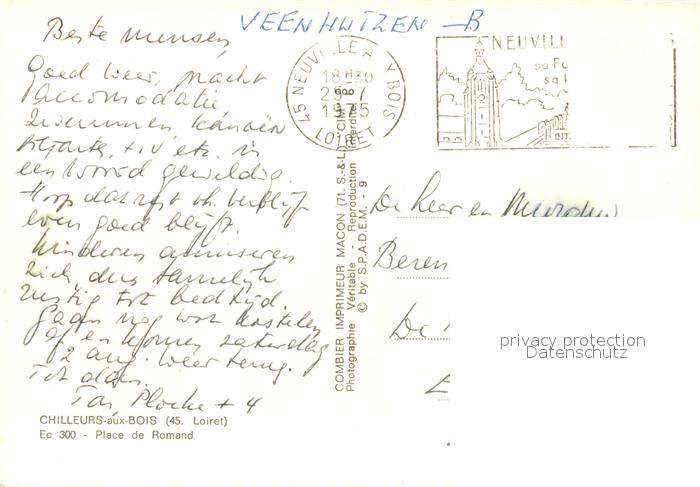 VEENHUIZEN - B
Beste mensen,
Goed weer, pracht
accomodatie
zwemmen, kanoën
t.v. etc. in
een woord geweldig.
Hoop dat rest v.h. verblijf
even goed blijft.
Kinderen amuseren
zich, dus tamelijk
rustig tot bedtijd.
Gaan nog wat kastelen
af en komen zaterdag
2 aug. weer terug.
Tot dan,
+ 4
CHILLEURS-aux-BOIS (45. Loiret)
Ec 300 - Place de Romand
45 NEUVILLE AUX BOIS
18H30
1975
LOIRET
NEUVILL
sa Fo
sa
COMBIER IMPRIMEUR MACON (71. S.-&-L.) "CIM"
Photographie Véritable - Reproduction interdite
© by S.P.A.D.E.M. - 9
De heer en Mevrouw
Beren
De
privacy protection
Datenschutz